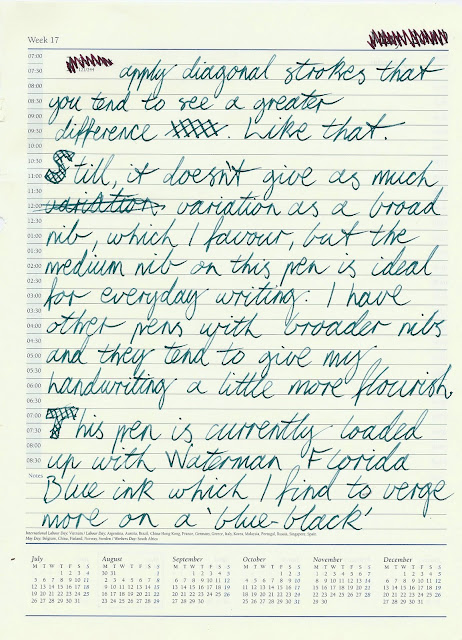 Week 17
07:00
07:30
08:00
08:30
09:00
09:30
10:30
11:00
11:30
12:00
12:30
01:00
01:30
02:00
02:30
03:00
03:30
04:00
04:30
05:00
05:30
06:00
06:30
07:00
07:30
08:00
08:30
Notes
apply diagonal strokes that
you tend to see a greater
difference . Like that.
Still, it doesn't give as much
variation variation as a broad
nib, which I favour, but the
medium nib on this pen is ideal
for everyday writing. I have
other pens with broader nibs
and they tend to give my
handwriting a little more flourish.
This pen is currently loaded
up with Waterman Florida
Blue ink which I find to verge
more on a 'blue-black'
July
M T W T F S S
1 2 3 4
5 6 7 8 9 10 11
12 13 14 15 16 17 18
19 20 21 22 23 24 25
26 27 28 29 30 31
August
M T W T F S S
30 31 1
2 3 4 5 6 7 8
9 10 11 12 13 14 15
16 17 18 19 20 21 22
23 24 25 26 27 28 29
September
M T W T F S S
1 2 3 4 5
6 7 8 9 10 11 12
13 14 15 16 17 18 19
20 21 22 23 24 25 26
27 28 29 30
October
M T W T F S S
1 2 3
4 5 6 7 8 9 10
11 12 13 14 15 16 17
18 19 20 21 22 23 24
25 26 27 28 29 30 31
November
M T W T F S S
1 2 3 4 5 6 7
8 9 10 11 12 13 14
15 16 17 18 19 20 21
22 23 24 25 26 27 28
29 30
December
M T W T F S S
1 2 3 4 5
6 7 8 9 10 11 12
13 14 15 16 17 18 19
20 21 22 23 24 25 26
27 28 29 30 31